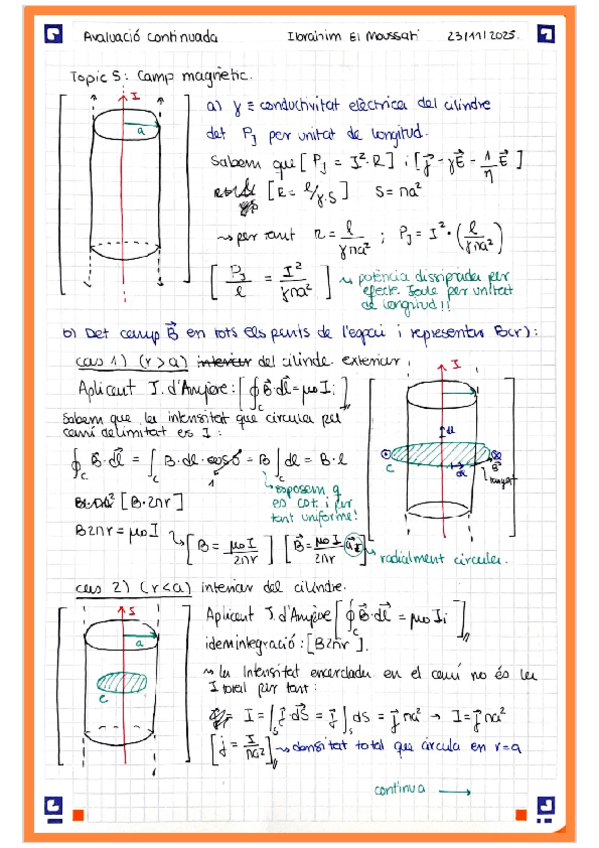 Avaluació Continuada Ibrahim El Moussati 23/11/2025.
Topic 5: Camp magnètic.
I
a
a) γ ≡ conductivitat elèctrica del cilindre
det Pj per unitat de longitud.
Sabem que [ Pj = I²·R ] i [ j⃗ = γE⃗ = 1/η E⃗ ]
[ R = l/γ·S ] S = πa²
↝ per tant R = l/γπa² ; Pj = I² · ( l/γπa² )
[ Pj/l = I²/γπa² ] ↝ potència dissipada per
efecte Joule per unitat
de longitud!!
b) Det camp B⃗ en tots els punts de l'espai i representar B(r):
cas 1) (r > a) interior del cilinde. exterior
Aplicant T. d'Ampère: [ ∮c B⃗·dl⃗ = μ0 Ii ]
Sabem que la intensitat que circula pel
camí delimitat es I:
∮c B⃗·dl⃗ = ∫c B·dl·cos0 = B ∫c dl = B·l
1
↳ suposem q
es cot. i per
tant uniforme!
[B·2πr]
B2πr = μ0 I ↳ [ B = μ0 I/2πr ] [ B⃗ = μ0 I/2πr ] ↝ radialment circular.
I
C
B⃗
cas 2) (r < a) interior del cilindre.
a
C
Aplicant T. d'Ampère [ ∮c B⃗·dl⃗ = μ0 Ii ]
idem integració: [B2πr].
↝ la Intensitat encerclada en el camí no és la
I total per tant:
I = ∫s j⃗·dS⃗ = j⃗ ∫s dS = j⃗ πa² → I = j⃗ πa²
[ j = I/πa² ] ↝ densitat total que circula en r=a
continua →